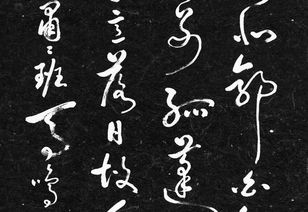 北郭白
别孤蓬
意落日故
蕭々班馬鳴